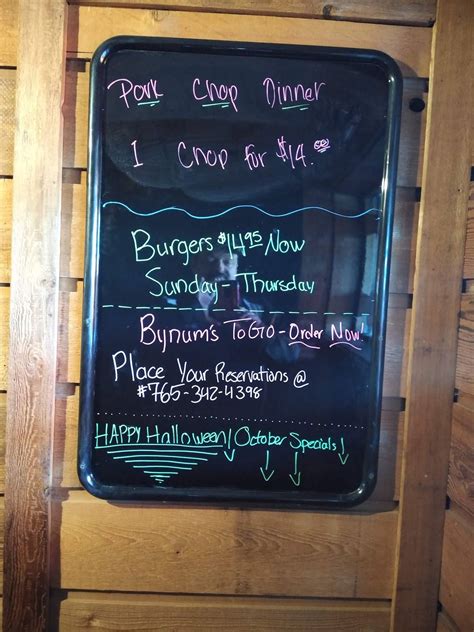 Pork Chop Dinner
1 Chop for $14.00
Burgers $14.95 Now
Sunday - Thursday
Bynum's To Go - Order Now!
Place Your Reservations @
#765-342-4398
HAPPY Halloween! October Specials